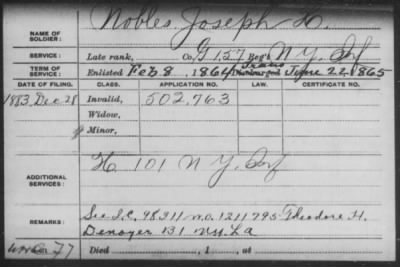 NAME OF SOLDIER: Nobles, Joseph H.
SERVICE: Late rank, Co. G 157 Reg't N Y. Inf
TERM OF SERVICE: Enlisted Feb 8, 1864 Discharged Trans June 22, 1865
DATE OF FILING. CLASS. APPLICATION NO. LAW. CERTIFICATE NO.
1883, Dec 28 Invalid, 502,763
Widow,
Minor,
ADDITIONAL SERVICES: H. 101 N Y. Inf
REMARKS: See I.C. 98311 W.O. 1211795 Theodore H.
Denoyer 131 NY. L A
77 Died , 1 , at